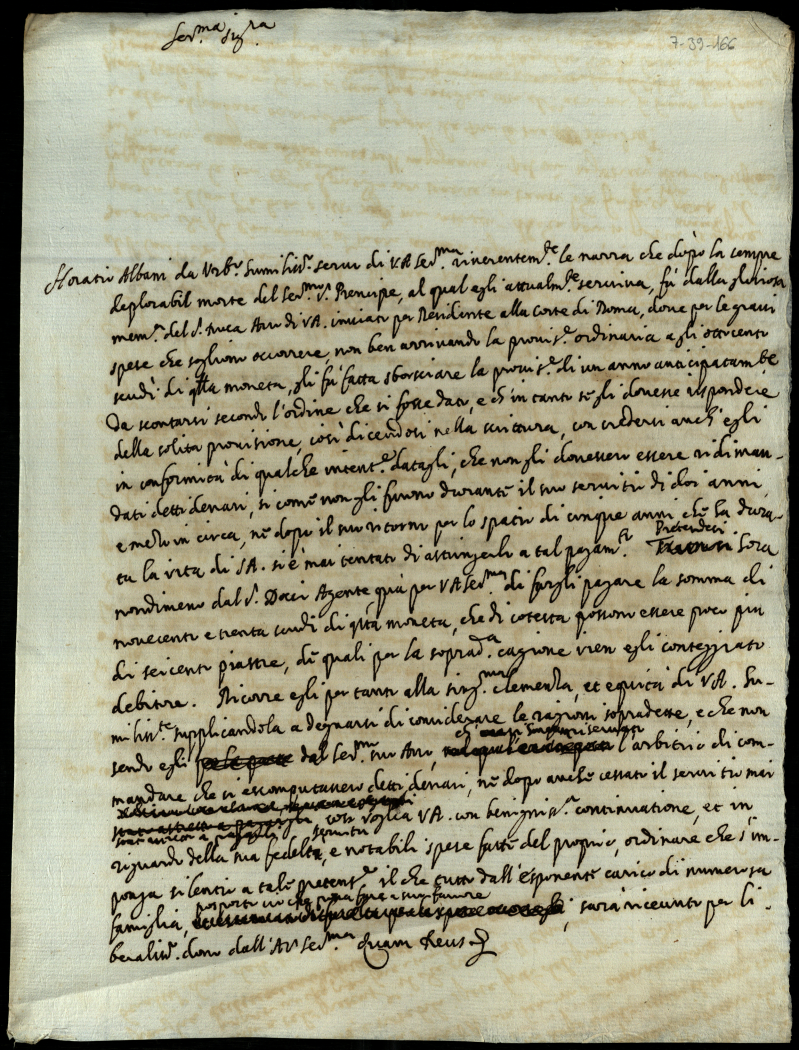 Ser.ma Sig.ra
7-39-166
Horatio Albani da Urb.o humiliss.o servo di V A Ser.ma riverentem.te le narra che dopò la sempre
deplorabil morte del Ser.mo S.r Prencipe, al qual egli attualm.te serviva, fù dalla gloriosa
mem.a del S.r Duca Avo di VA. inviato per Residente alla corte di Roma, dove per le gravi
spese che sogliono occorrere, non ben arrivando la provis.e ordinaria agli ottocento
scudi di q.lla moneta, gli fù fatta sborsciare la provis.e di un anno anticipatam.te
da scontarsi secondo l'ordine che si fosse dato, e ch'in tanto se gli dovesse rispondere
della solita provisione, così dicendosi nella scrittura, con credersi anch'egli
in conformità di qualche intent.e datagli, che non gli dovessero essere ridiman-
dati detti denari, si come non gli furono durante il suo servitio di doi anni,
e mezo in circa, nè dopo il suo ritorno per lo spatio di cinque anni che ha dura-
ta la vita di SA. si è mai tentato di astringerlo a tal pagam.to Pretendesi hora
nondimeno dal S.r Doci Agente quà per VA Ser.ma di fargli pagare la somma di
novecento e trenta scudi di q.lla moneta, che di cotesta possono essere poco più
di seicento piastre, de quali per la soprad.a cagione vien egli conteggiato
debitore. Ricorre egli per tanto alla sing.ma clemenza, et equità di VA. hu-
miliss.te supplicandola a degnarsi di considerare le ragioni sopradette, e che non
sendo egli dal Ser.mo suo Avo, l'arbitrio di com-
mandare che si escomputassero detti denari, nè dopo anche cessato il servitio mai
così voglia VA. con benigniss.a continuatione, et in
riguardo della sua fedeltà, servitù e notabili spese fatte del proprio, ordinare che s'im-
ponga silentio a tale pretens.e il che tutto dall'esponente carico di numerosa
famiglia, sarà ricevuto per li-
beraliss.o dono dall'A V Ser.ma Quam Deus